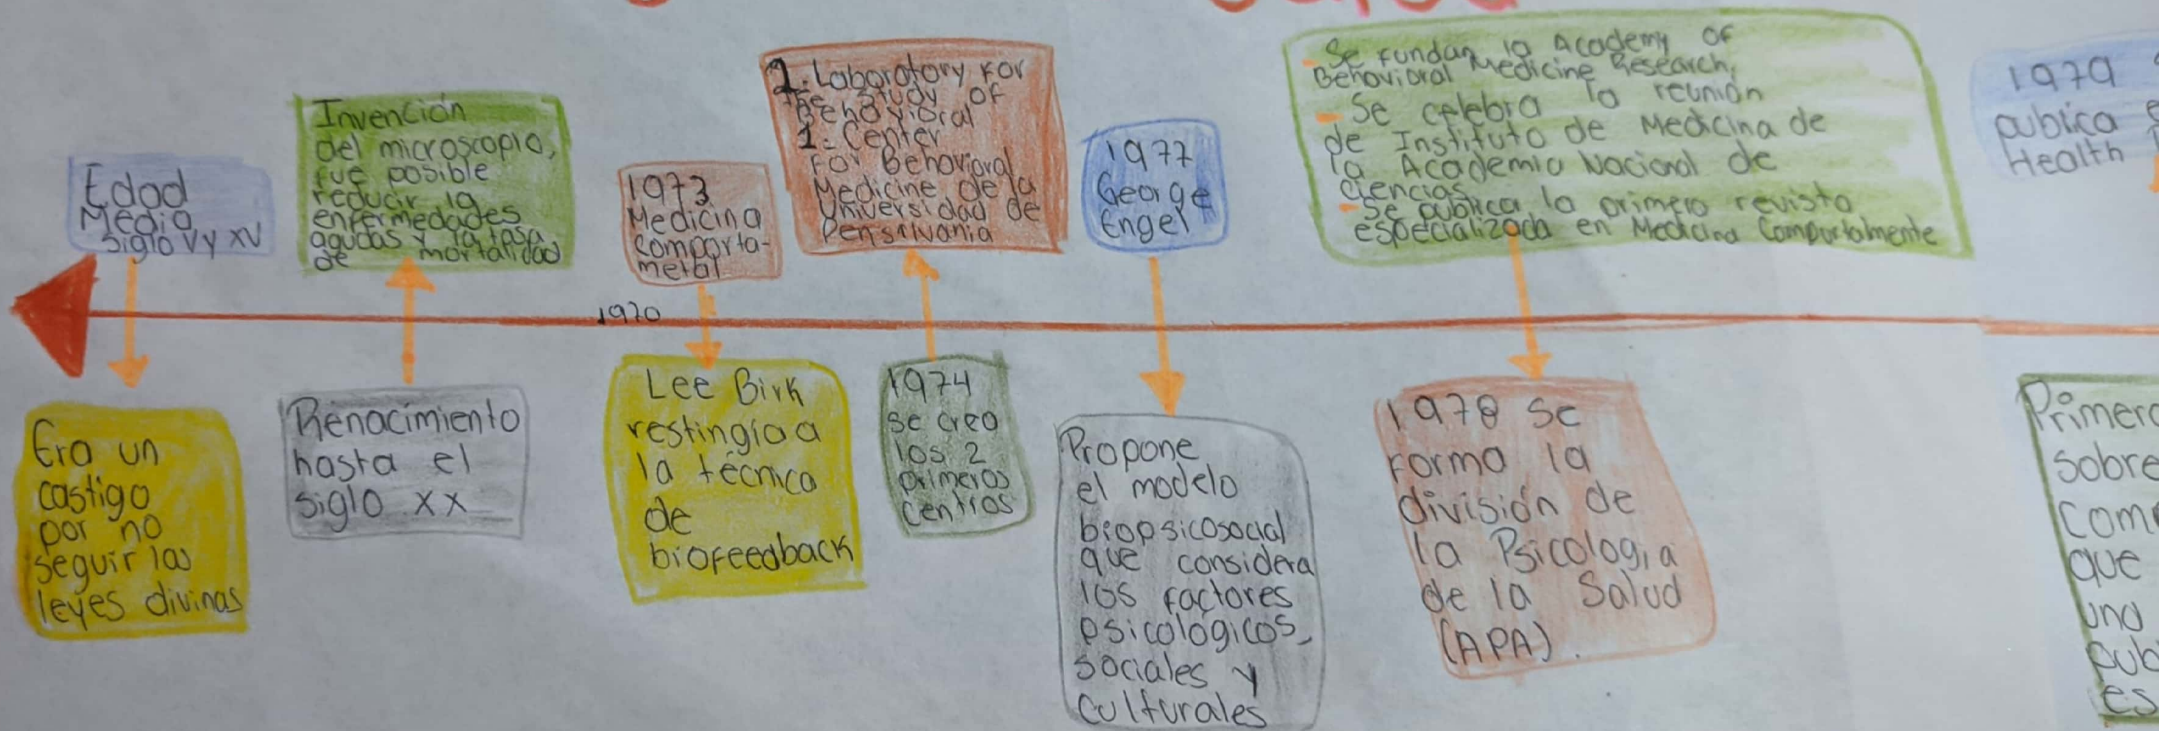 Edad
Media
Siglo V y XV
Era un
castigo
por no
seguir las
leyes divinas
Invención
del microscopio,
fue posible
reducir la
enfermedades
agudas y la tasa
de mortalidad
Renacimiento
hasta el
siglo XX
1970
1973
Medicina
Comporta-
metal
Lee Birk
restingio a
la técnica
de
biofeedback
1. Laboratory For
the Study of
Behavioral
1. Center
For Behavioral
Medicine de la
Universidad de
Pensilvania
1974
se creo
los 2
primeros
centros
1977
George
Engel
Propone
el modelo
biopsicosocial
que considera
los factores
psicologicos,
sociales y
culturales
- Se fundan la Academy OF
Behavioral Medicine Research,
- Se celebra la reunión
de Instituto de Medicina de
la Academia Nacional de
Ciencias
- Se publica la primera revista
especializada en Medicina Comportalmente
1978 se
forma la
división de
la Psicologia
de la Salud
(APA).
1979
pubica
Health
Primero
sobre
com
que
una
pub
es